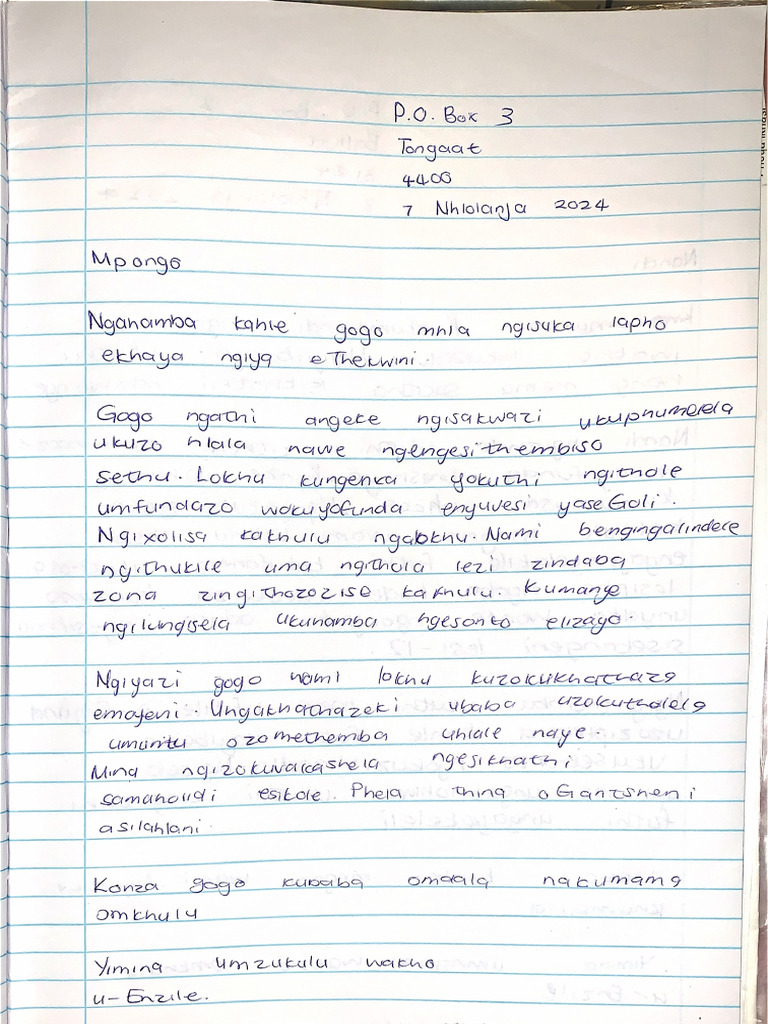 P.O. Box 3
Tongaat
4400
7 Nhlolanja 2024
Mpongo
Ngahamba kahle gogo mhla ngisuka lapho
ekhaya ngiya eThekwini.
Gogo ngathi angeke ngisakwazi ukuphumelela
ukuzo hlala nawe ngengesithembiso
sethu. Lokhu kungenxa yokuthi ngithole
umfundazo wokuyofunda enyuvesi yaseGoli.
Ngixolisa kakhulu ngalokhu. Nami bengingalindele
ngithukile uma ngithola lezi zindaba
zona zingithozozise kakhulu. Kumanje
ngilungisela ukuhamba ngesonto elizayo.
Ngiyazi gogo wami lokhu kuzokukhathaza
emoyeni. Ungakhathazeki ubaba uzokutholela
umuntu ozomethemba uhlale naye.
Mina ngizokuvakashela ngesikhathi
samaholidi esikole. Phela thina oGantsheni
asilahlani.
Konza gogo kubaba omdala nakumama
omkhulu
Yimina umzukulu wakho
u-Enzile.